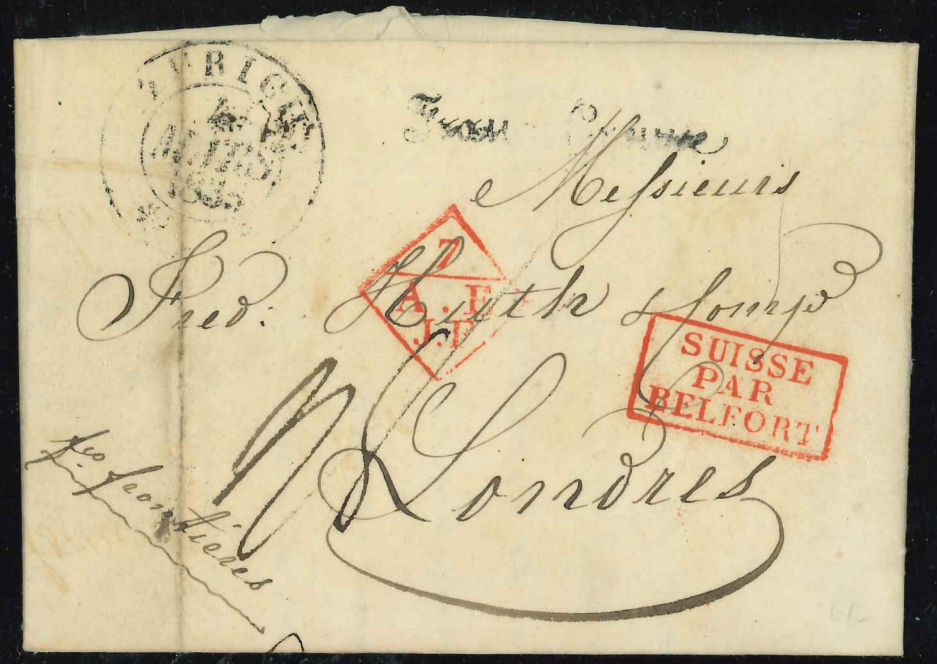 ZURICH
MARS
1835
Franco
Messieurs
Fred: Huth & Comp
7
A. E
J.F
SUISSE
PAR
BELFORT
Londres
fco frontières
61-